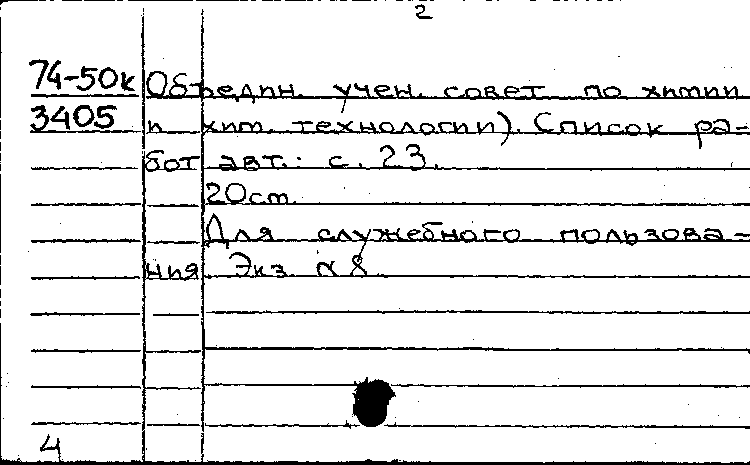 2
74-50к Объедин. учен. совет по химии
3405 и хим. технологии). Список ра=
бот авт.: с. 23.
20см.
Для служебного пользова=
ния. Экз. №8.
4